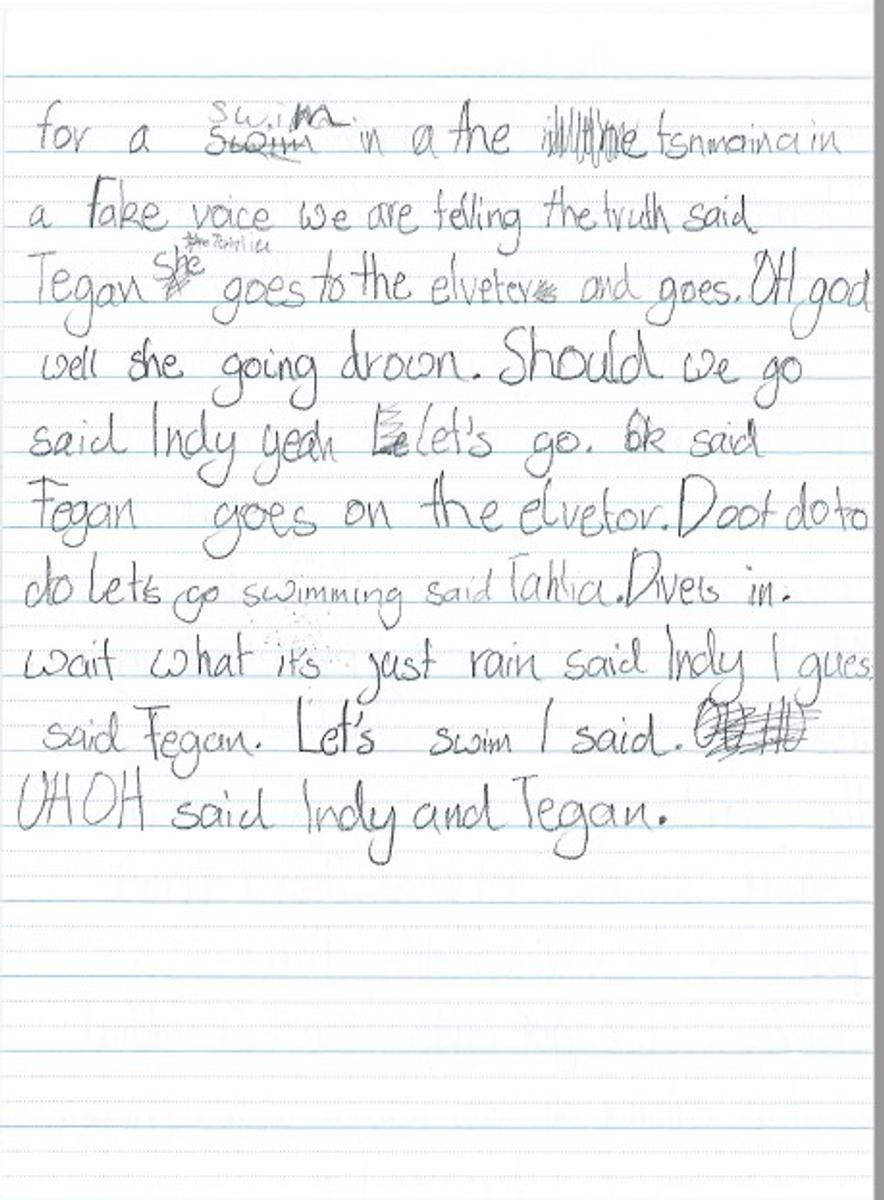 for a swim in a the tsnmaina in
a fake voice we are telling the truth said
Tegan she goes to the elveter and goes. OH god
well she going drown. Should we go
said Indy yeah Let's go. Ok said
Tegan goes on the elvetor. Doot do to
do Let's go swimming said Tahlia. Dives in.
wait what it's just rain said Indy I gues
said Tegan. Let's swim I said.
UH OH said Indy and Tegan.